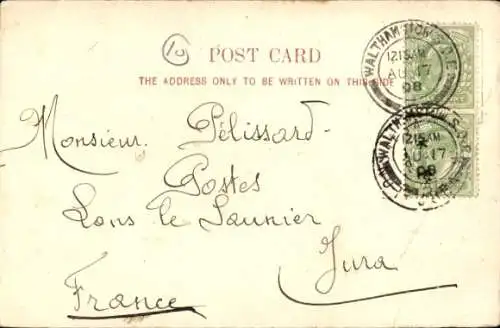 10
POST CARD
THE ADDRESS ONLY TO BE WRITTEN ON THIS SIDE
WALTHAMSTOW S.O.
12 15 AM
AU 17
08
WALTHAMSTOW S.O.
12 15 AM
AU 17
08
Monsieur. Pélissard.
Postes
Lons le Saunier
Jura
France